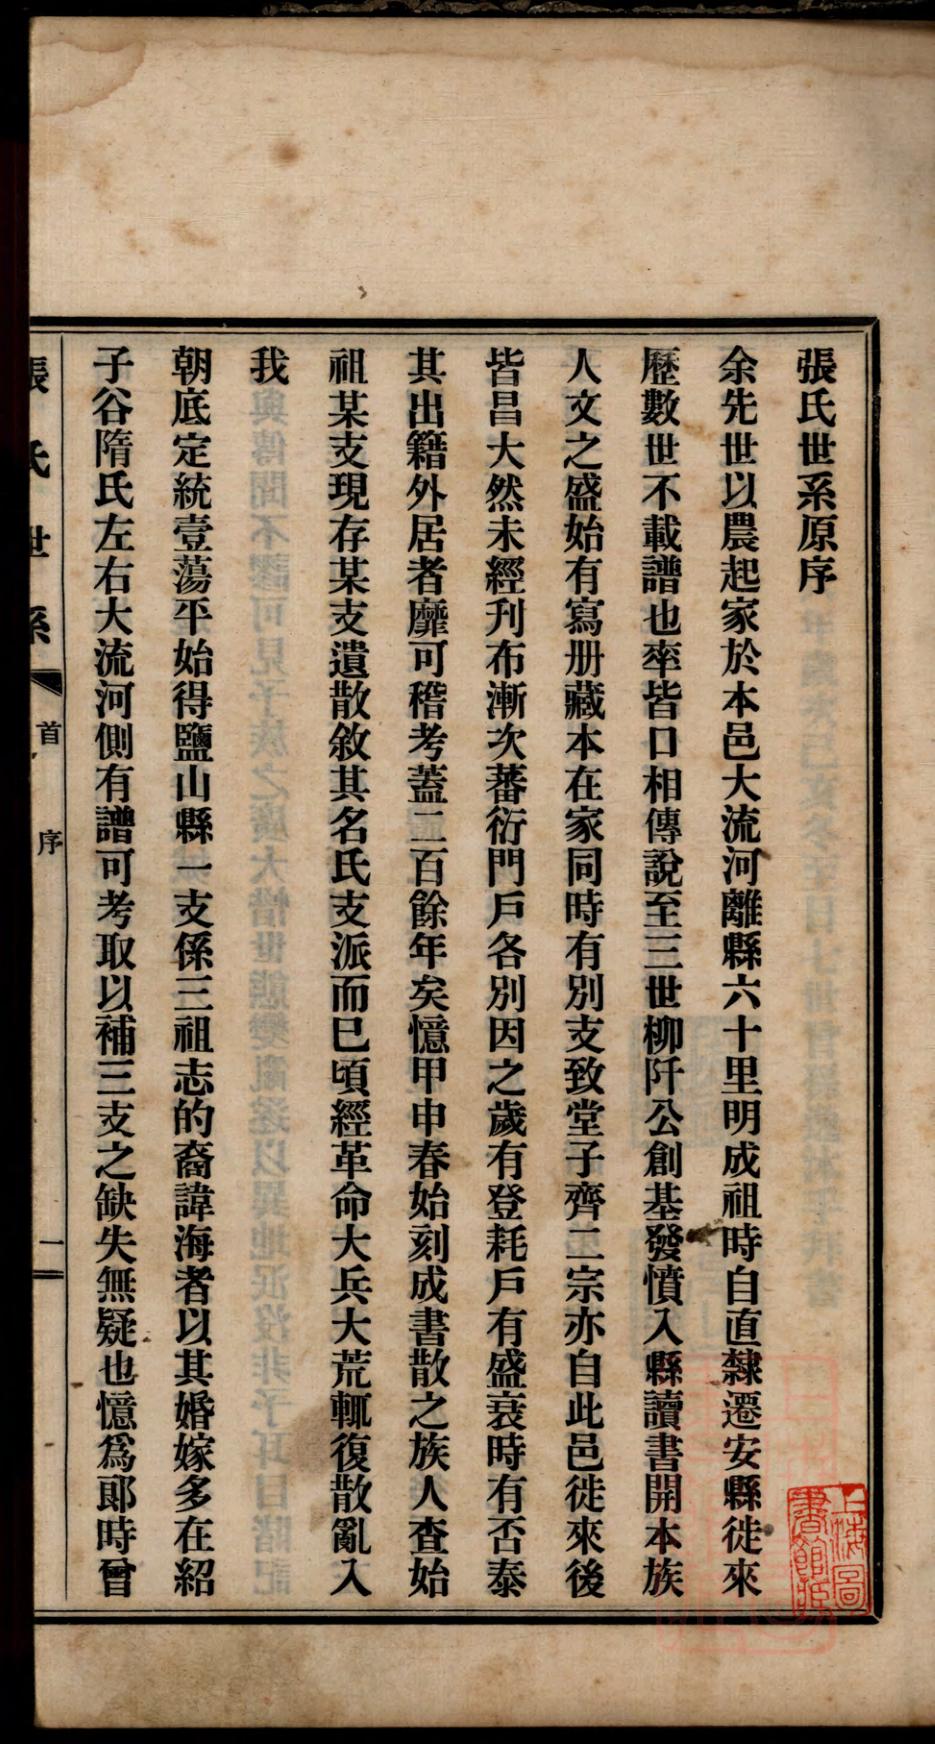 張氏世系原序
余先世以農起家於本邑大流河離縣六十里明成祖時自直隸遷安縣徙來
歷數世不載譜也率皆口相傳說至三世柳阡公創基發憤入縣讀書開本族
人文之盛始有寫册藏本在家同時有別支致堂子齊二宗亦自此邑徙來後
皆昌大然未經刋布漸次蕃衍門戶各別因之歲有登耗戶有盛衰時有否泰
其出籍外居者靡可稽考蓋二百餘年矣憶甲申春始刻成書散之族人查始
祖某支現存某支遺散敘其名氏支派而已頃經革命大兵大荒輒復散亂入
我
朝底定統壹蕩平始得鹽山縣一支係三祖志的裔諱海者以其婚嫁多在紹
子谷隋氏左右大流河側有譜可考取以補三支之缺失無疑也憶爲郎時曾
張氏世系
首
序
一
上海圖
書館藏